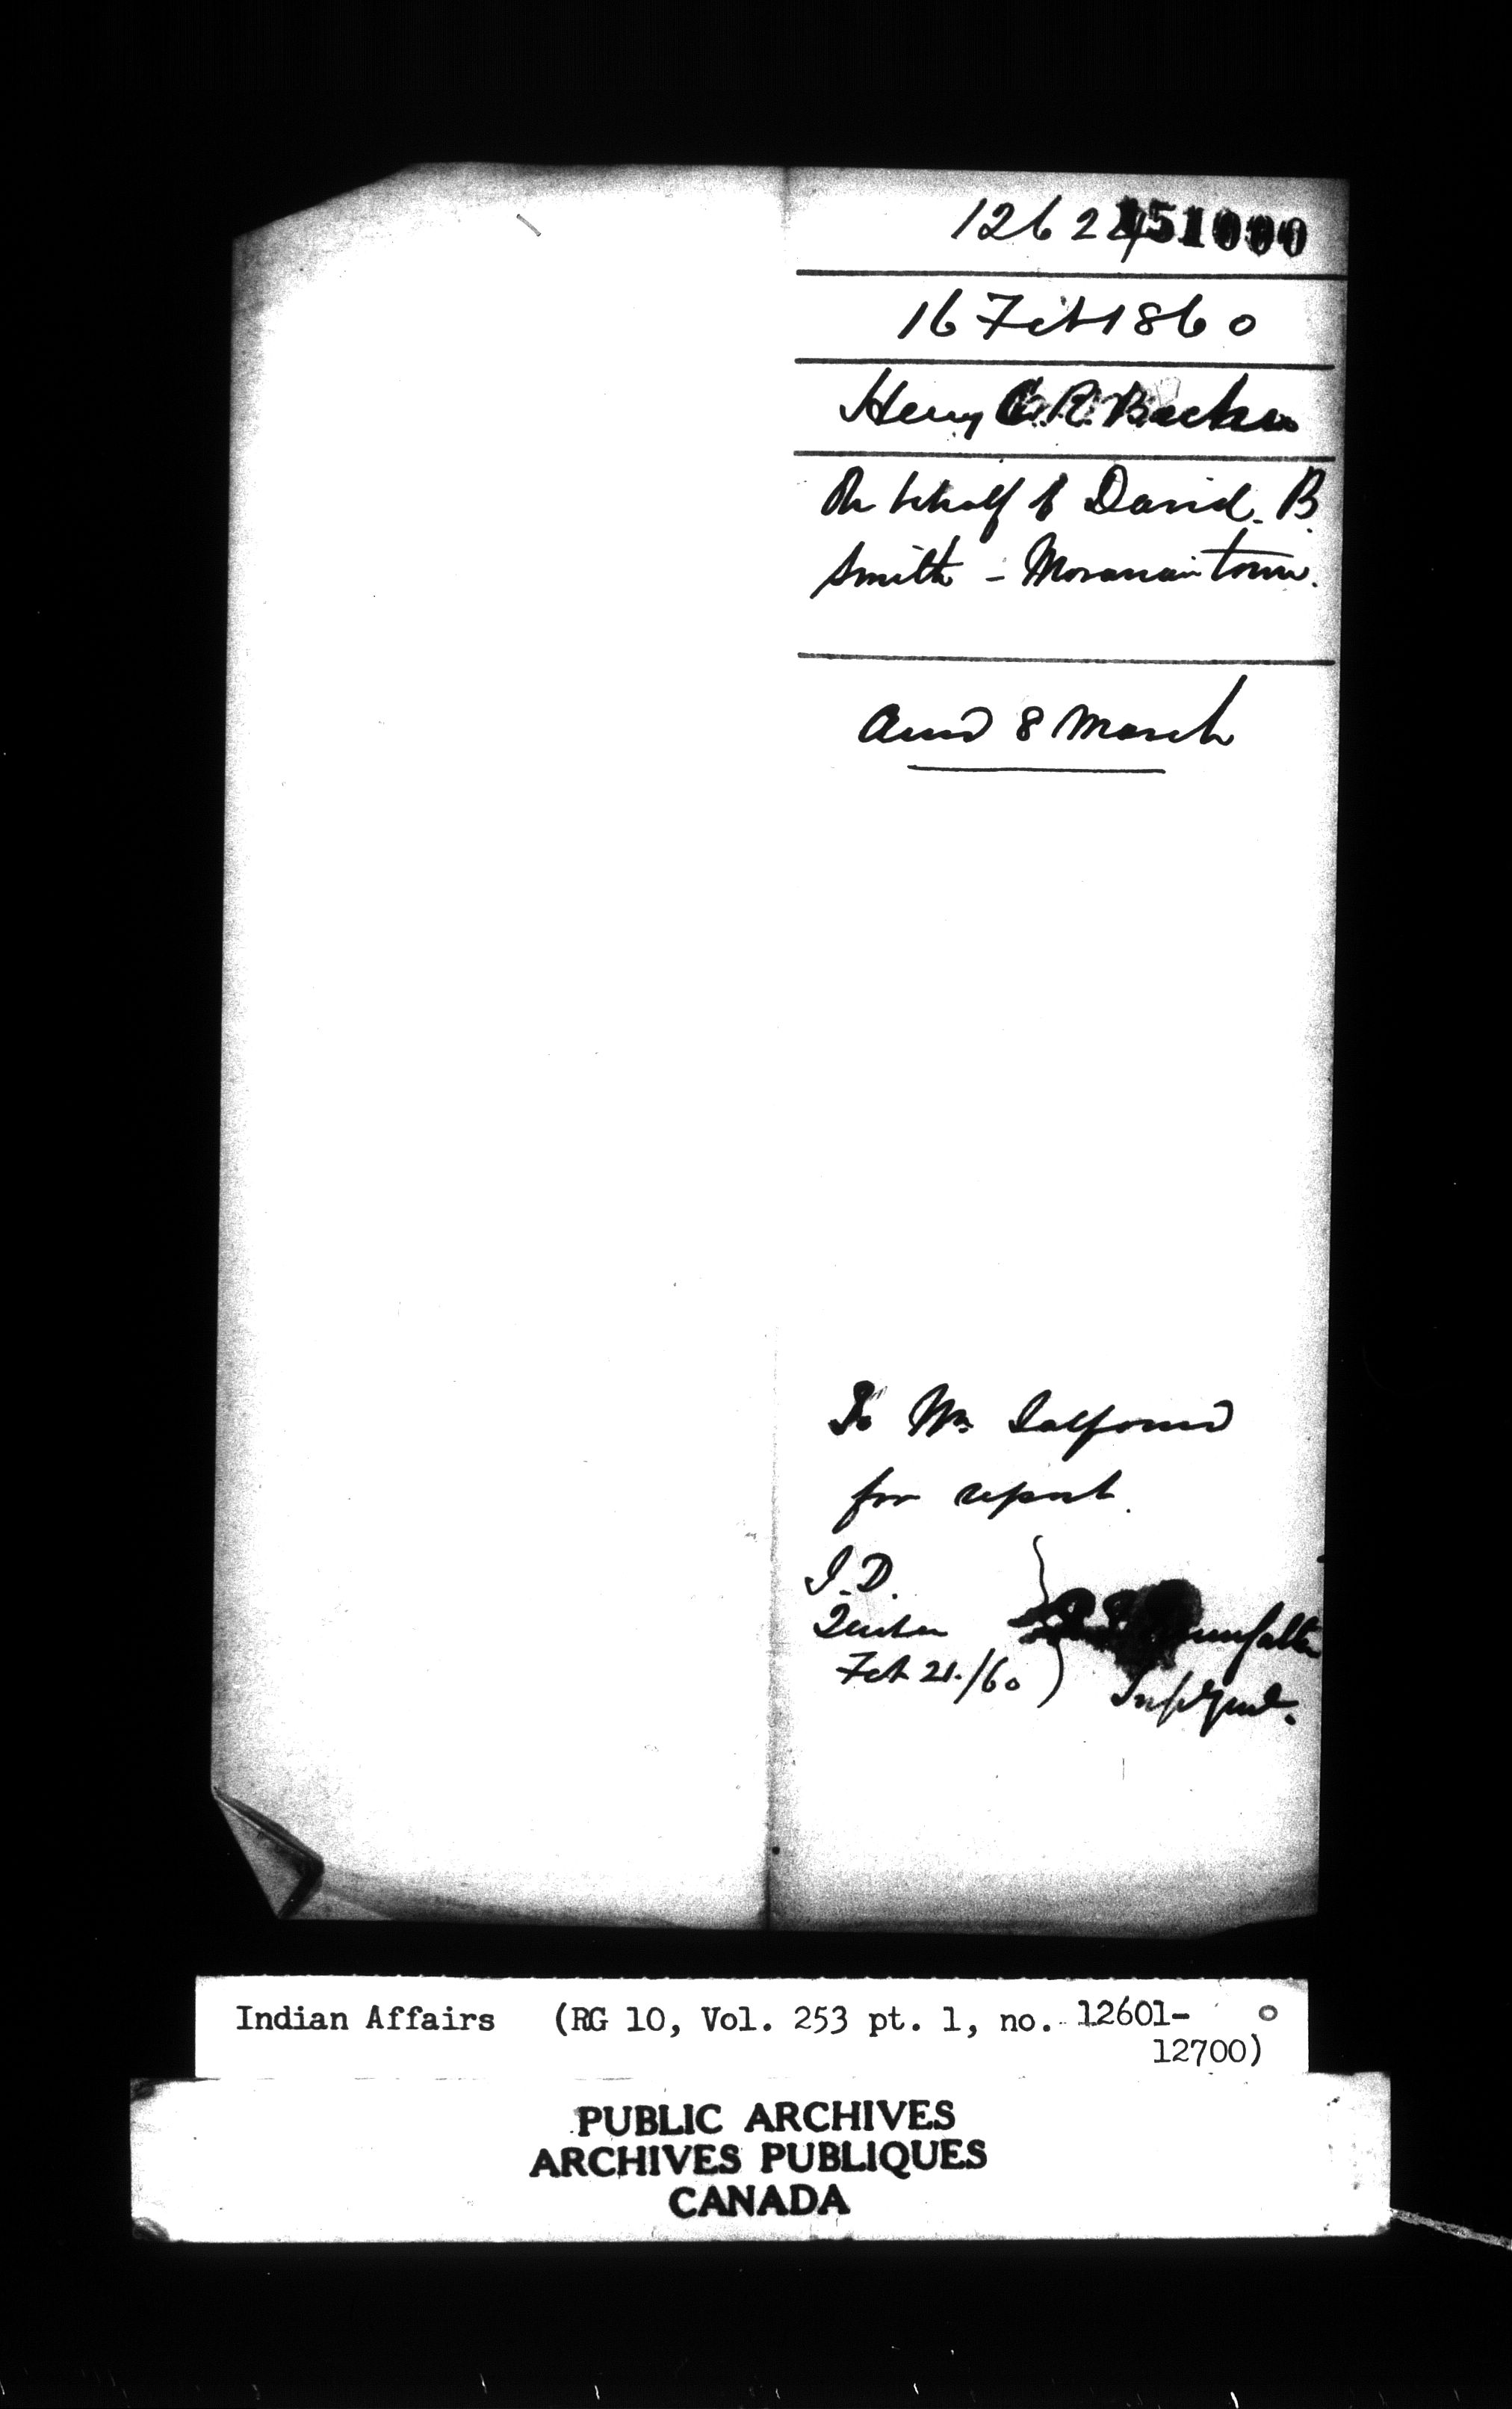 12624 151000
16 Feb 1860
Henry C.R. Becher
On behalf of David. B.
Smith - Moraviantown.
Ansd 8 March
To Mr. Talfourd
for report.
I.D.
Quebec
Feb 21./60
Pennefather
Supt Genl.
Indian Affairs (RG 10, Vol. 253 pt. 1, no. 12601-
12700)
PUBLIC ARCHIVES
ARCHIVES PUBLIQUES
CANADA